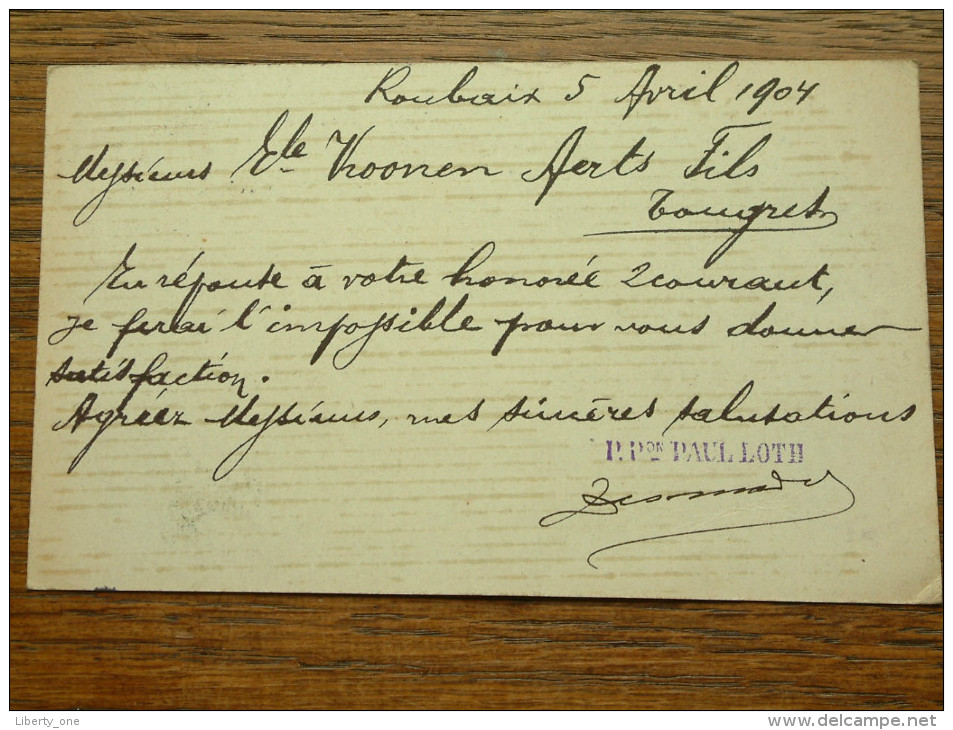 Roubaix 5 Avril 1904
Messieurs Ele Vroonen Aerts Fils
Tongres
En réponse à votre honorée 2 courant,
je ferai l'impossible pour vous donner
satisfaction.
Agréez Messieurs, mes sincères salutations
P. Pon PAUL LOTH
Liberty_one
www.delcampe.net